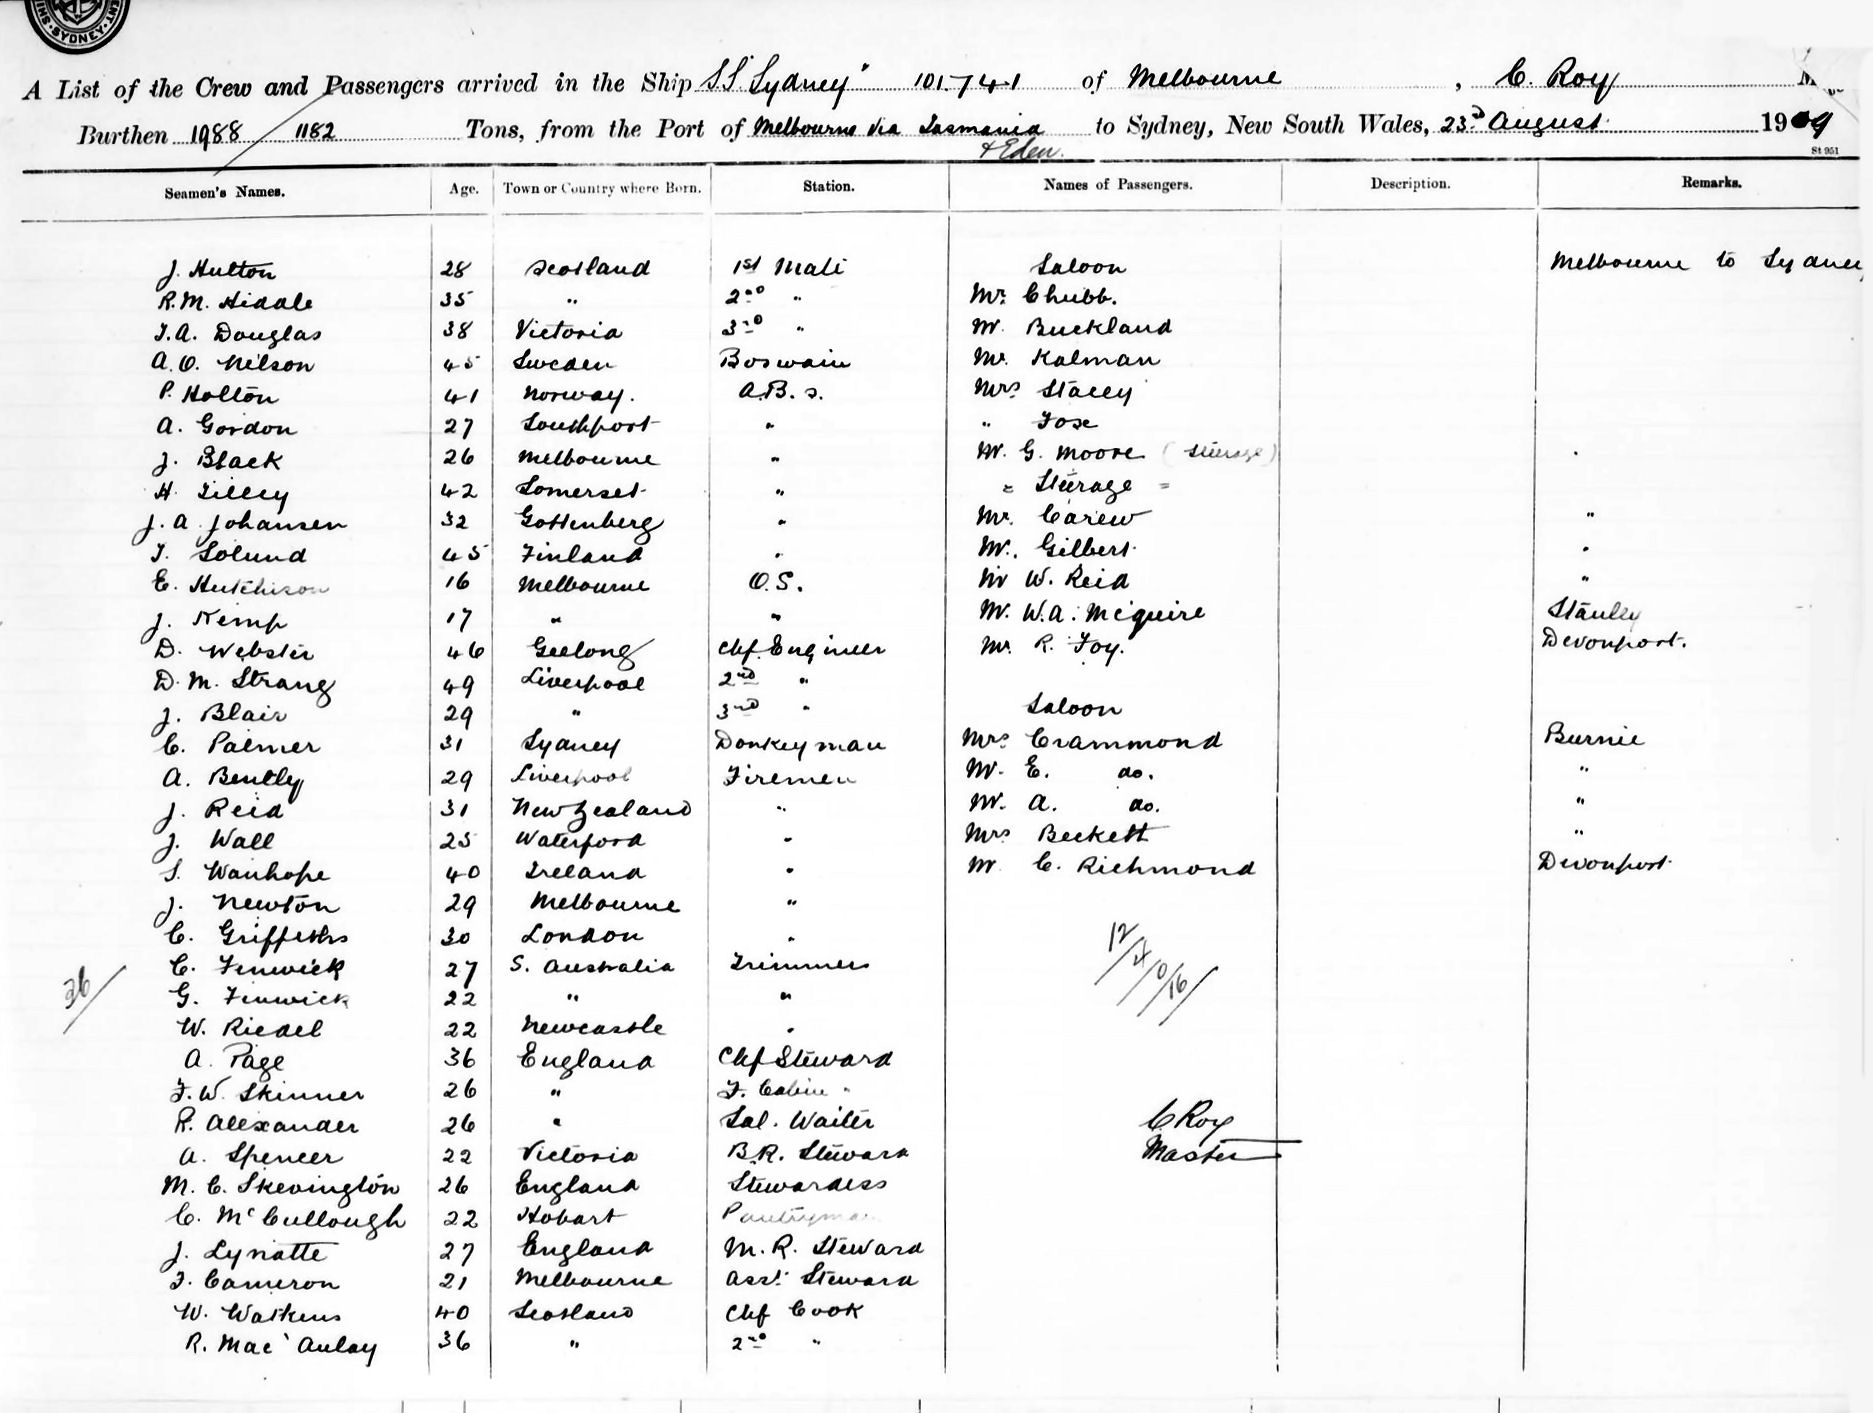 SYDNEY
A List of the Crew and Passengers arrived in the Ship S.S. "Sydney" 101741 of Melbourne, C. Roy
Burthen 1988 / 1182 Tons, from the Port of Melbourne via Tasmania & Eden to Sydney, New South Wales, 23rd August 1909
St 951
Seamen's Names. Age. Town or Country where Born. Station. Names of Passengers. Description. Remarks.
J. Hutton 28 Scotland 1st Mate Saloon Melbourne to Sydney
R. M. Hiddle 35 " 2nd " Mr. Chubb.
T. A. Douglas 38 Victoria 3rd " Mr. Buckland
A. O. Nelson 45 Sweden Boswain Mr. Kalman
P. Holton 41 Norway. A.B.s. Mrs Stacey
A. Gordon 27 Southport " " Fox
J. Black 26 Melbourne " Mr. G. Moore (Steerage) "
H. Tilley 42 Somerset " = Steerage =
J. A. Johansen 32 Gottenberg " Mr. Carew "
T. Solund 45 Finland " Mr. Gilbert "
E. Hutchison 16 Melbourne O.S. Mr W. Reid "
J. Kemp 17 " " Mr. W. A. McGuire Stanley
D. Webster 46 Geelong Chf. Engineer Mr. R. Foy. Devonport.
D. M. Strang 49 Liverpool 2nd "
J. Blair 29 " 3rd " Saloon
C. Palmer 31 Sydney Donkeyman Mrs Crammond Burnie
A. Bently 29 Liverpool Firemen Mr. E. do. "
J. Reid 31 New Zealand " Mr. A. do. "
J. Wall 25 Waterford " Mrs Beckett "
S. Wanhope 40 Ireland " Mr C. Richmond Devonport
J. Newton 29 Melbourne "
C. Griffiths 30 London "
C. Fenwick 27 S. Australia Trimmers
G. Fenwick 22 " "
W. Riedel 22 Newcastle "
A. Page 36 England Chf Steward
F. W. Skinner 26 " F. Cabin "
R. Alexander 26 " Sal. Waiter
A. Spencer 22 Victoria B.R. Steward
M. C. Skevington 26 England Stewardess
C. McCullough 22 Hobart Pantryman
J. Lynatte 27 England M.R. Steward
T. Cameron 21 Melbourne Asst. Steward
W. Watkins 40 Scotland Chf Cook
R. Mac'Aulay 36 " 2nd "
36/
12/4/0/16/
C Roy
Master